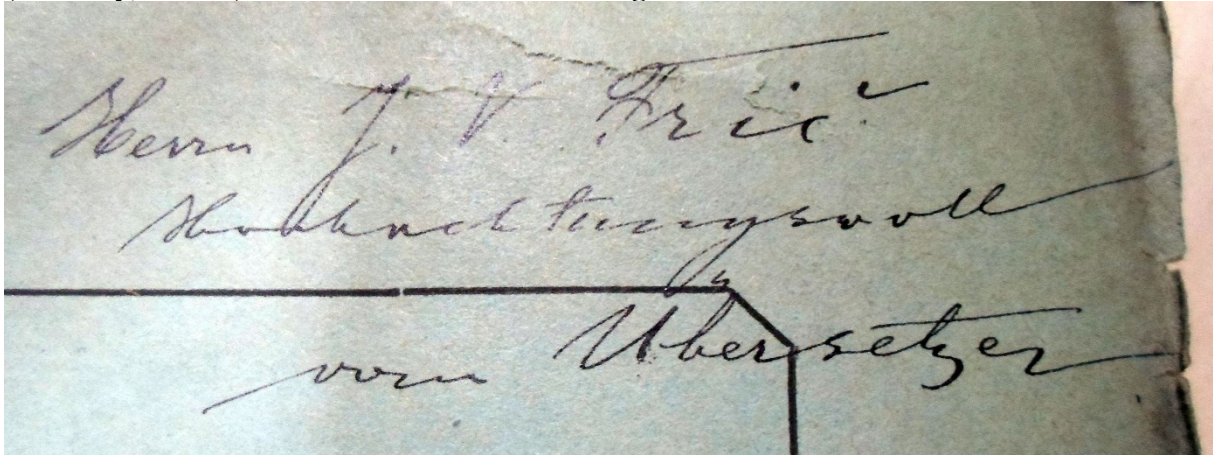 Herrn J. V. Frič
Hochachtungsvoll
vom Übersetzer